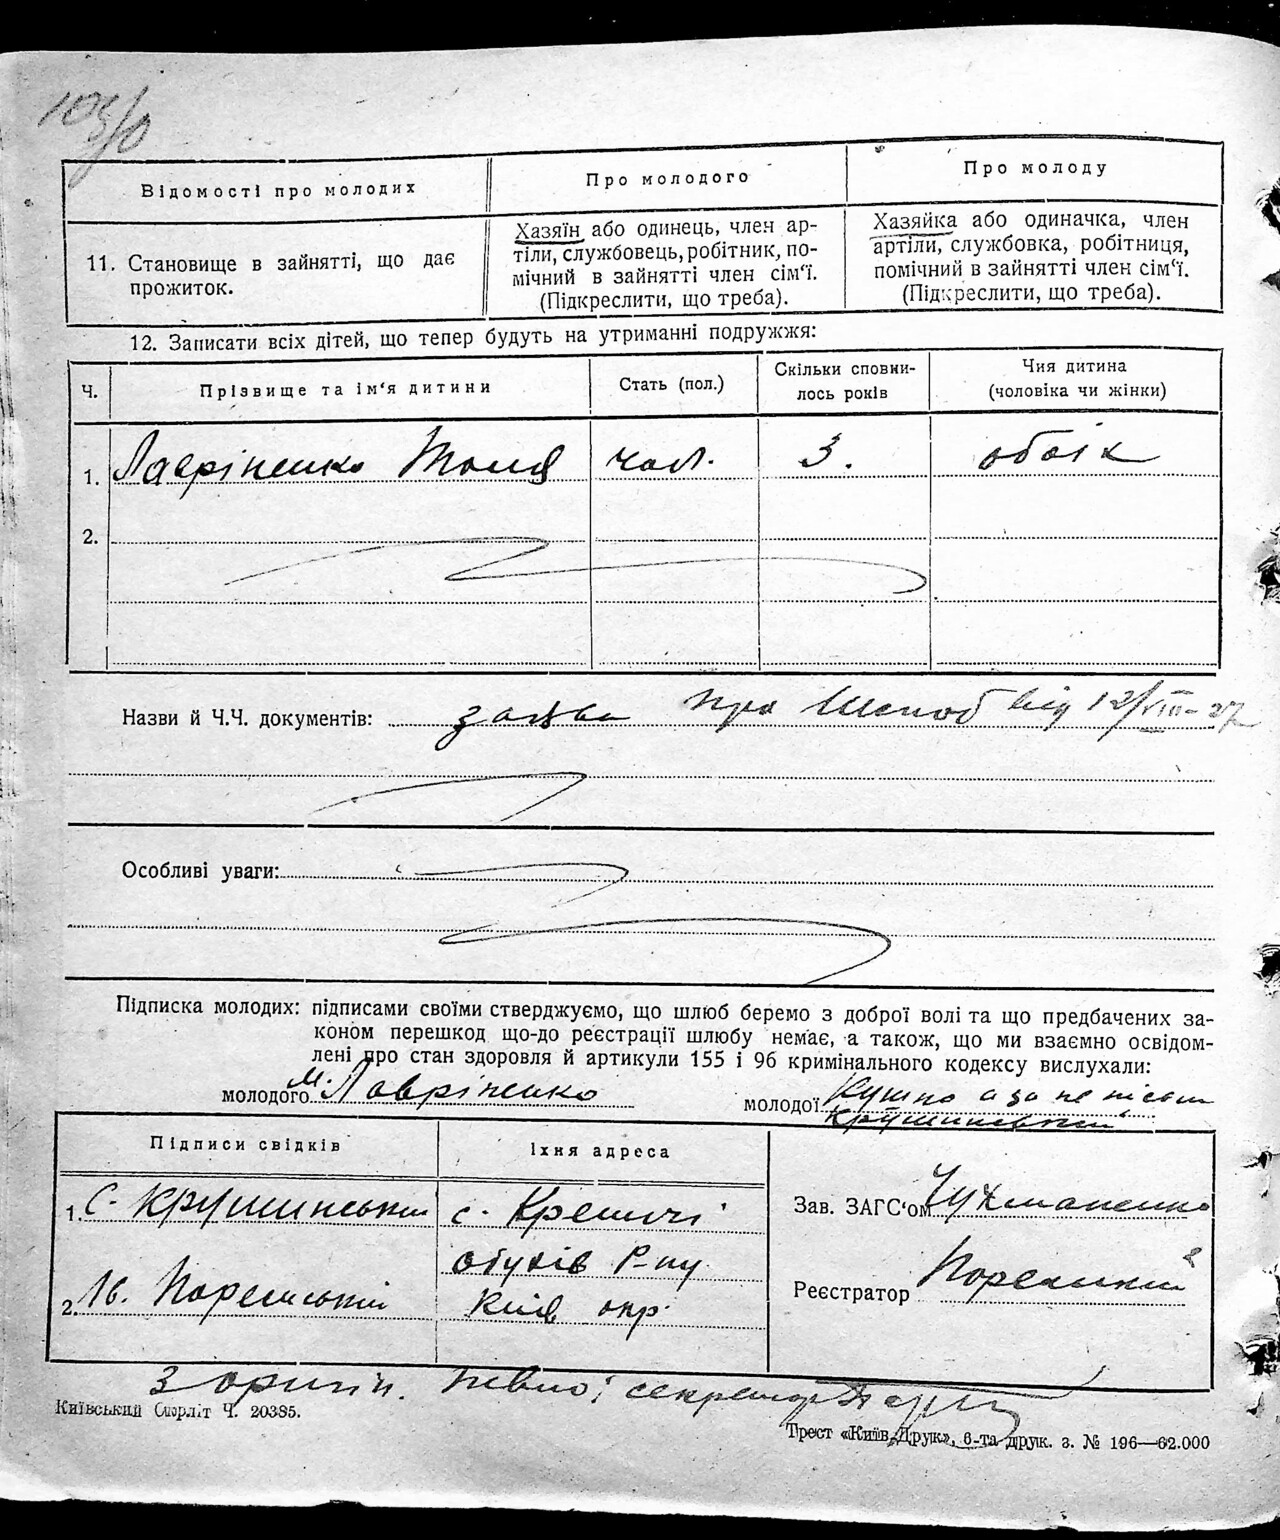 Відомості про молодих
Про молодого
Про молоду
11. Становище в зайнятті, що дає
прожиток.
Хазяїн або одинець, член ар-
тіли, службовець, робітник, по-
мічний в зайнятті член сім'ї.
(Підкреслити, що треба).
Хазяйка або одиначка, член
артіли, службовка, робітниця,
помічний в зайнятті член сім'ї.
(Підкреслити, що треба).
12. Записати всіх дітей, що тепер будуть на утриманні подружжя:
Ч.
Прізвище та ім'я дитини
Стать (пол.)
Скільки сповни-
лось років
Чия дитина
(чоловіка чи жінки)
1. Лавріненко Толя чол. 3. обоїх
2.
Назви й Ч.Ч. документів: заява про шлюб від 12/VIII-27
Особливі уваги:
Підписка молодих: підписами своїми стверджуємо, що шлюб беремо з доброї волі та що предбачених за-
коном перешкод що-до реєстрації шлюбу немає, а також, що ми взаємно освідом-
лені про стан здоровля й артикули 155 і 96 кримінального кодексу вислухали:
молодого М. Лавріненко
молодої а за не письм
Крушинський
Підписи свідків
Їхня адреса
1. С. Крушинський
с.
Обухів Р-ну
Київ окр.
2.
Зав. ЗАГС'ом Чухманенко
Реєстратор
З оригін. певно: секретар
Київський Окрліт Ч. 20385.
Трест «Київ-Друк», 6-та друк. з. № 196—62.000